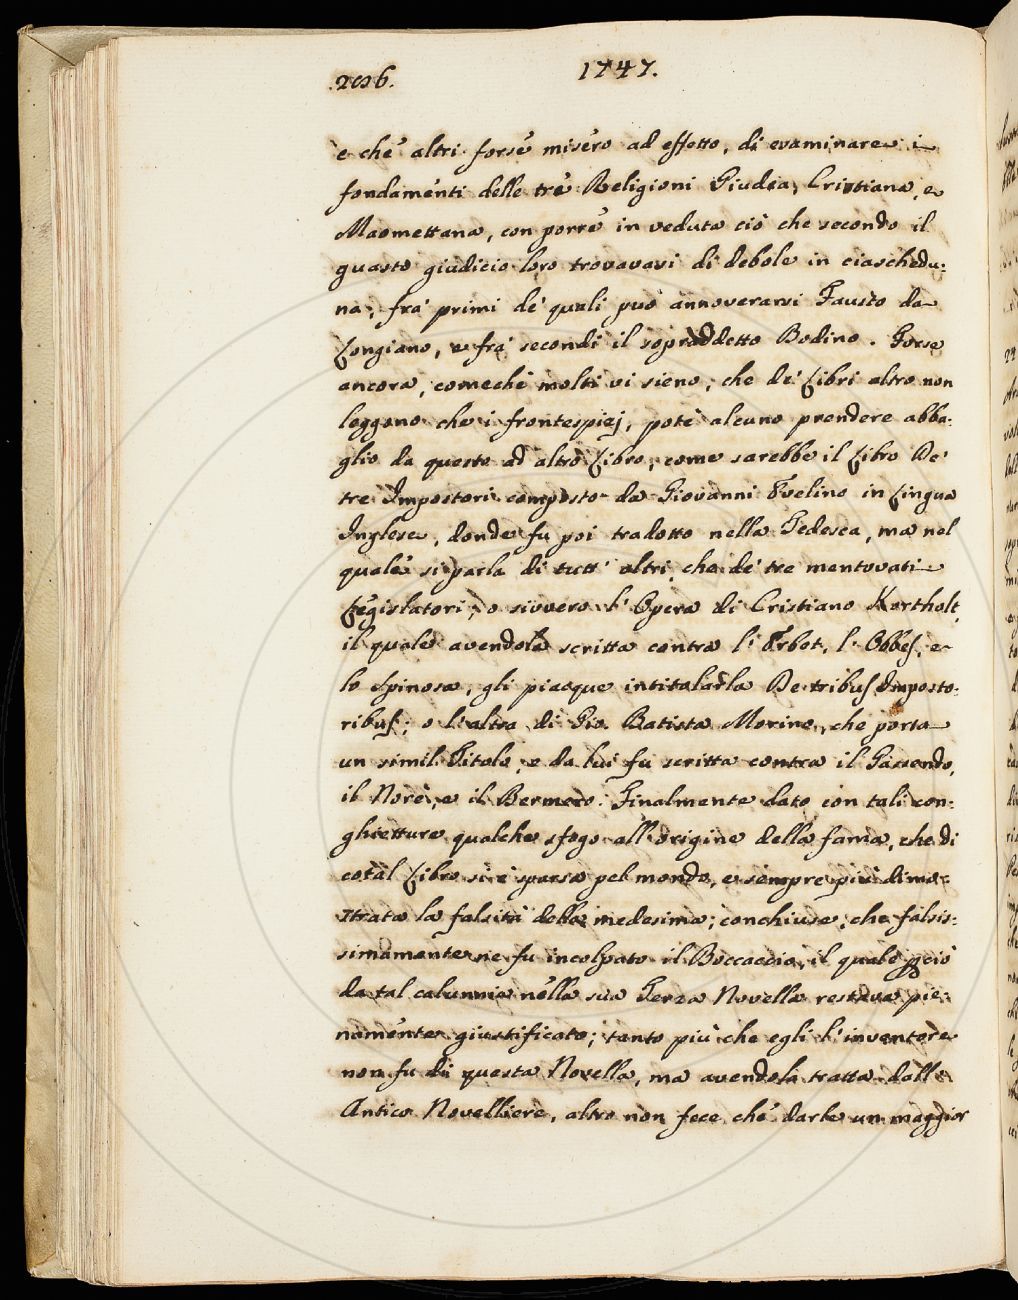 206. 1747.
e che altri forse misero ad effetto, di esaminare i
fondamenti delle tre Religioni Giudea, Cristiana, e
Maomettana, con porre in veduta ciò che secondo il
guasto giudicio loro trovavasi di debole in ciaschedu:
na; fra' primi de' quali può annoverarsi Fausto da
Longiano, e fra' secondi il sopraddetto Bodino. Forse
ancora, comechè molti vi sieno, che de' Libri altro non
leggono che i frontespizj, potè alcuno prendere abba:
glio da questo ad altro Libro, come sarebbe il Libro De'
tre Impostori composto da Giovanni Evelino in Lingua
Inglese, donde fu poi tradotto nella Tedesca, ma nel
quale si parla di tutt' altri, che de' tre mentovati
Legislatori; o sivvero l' Opera di Cristiano Kortholt,
il quale avendola scritta contra l' Erbot, l' Obbes, e
lo Spinosa, gli piacque intitolarla De tribus Imposto:
ribus; o l' altra di Gio. Batista Morino, che porta
un simil Titolo, e da lui fu scritta contra il Gassendo,
il Norè, e il Berniero. Finalmente dato con tali con:
ghietture qualche sfogo all' origine della fama, che di
cotal Libro si è sparsa pel mondo, e sempre più dimo:
strata la falsità della medesima; conchiuse, che falsis:
simamente ne fu incolpato il Boccaccio, il quale perciò
da tal calunnia nella sua Terza Novella restava pie:
namente giustificato; tanto più che egli l' inventore
non fu di questa Novella, ma avendola tratta dall'
Antico Novelliere, altro non fece che darle un maggior